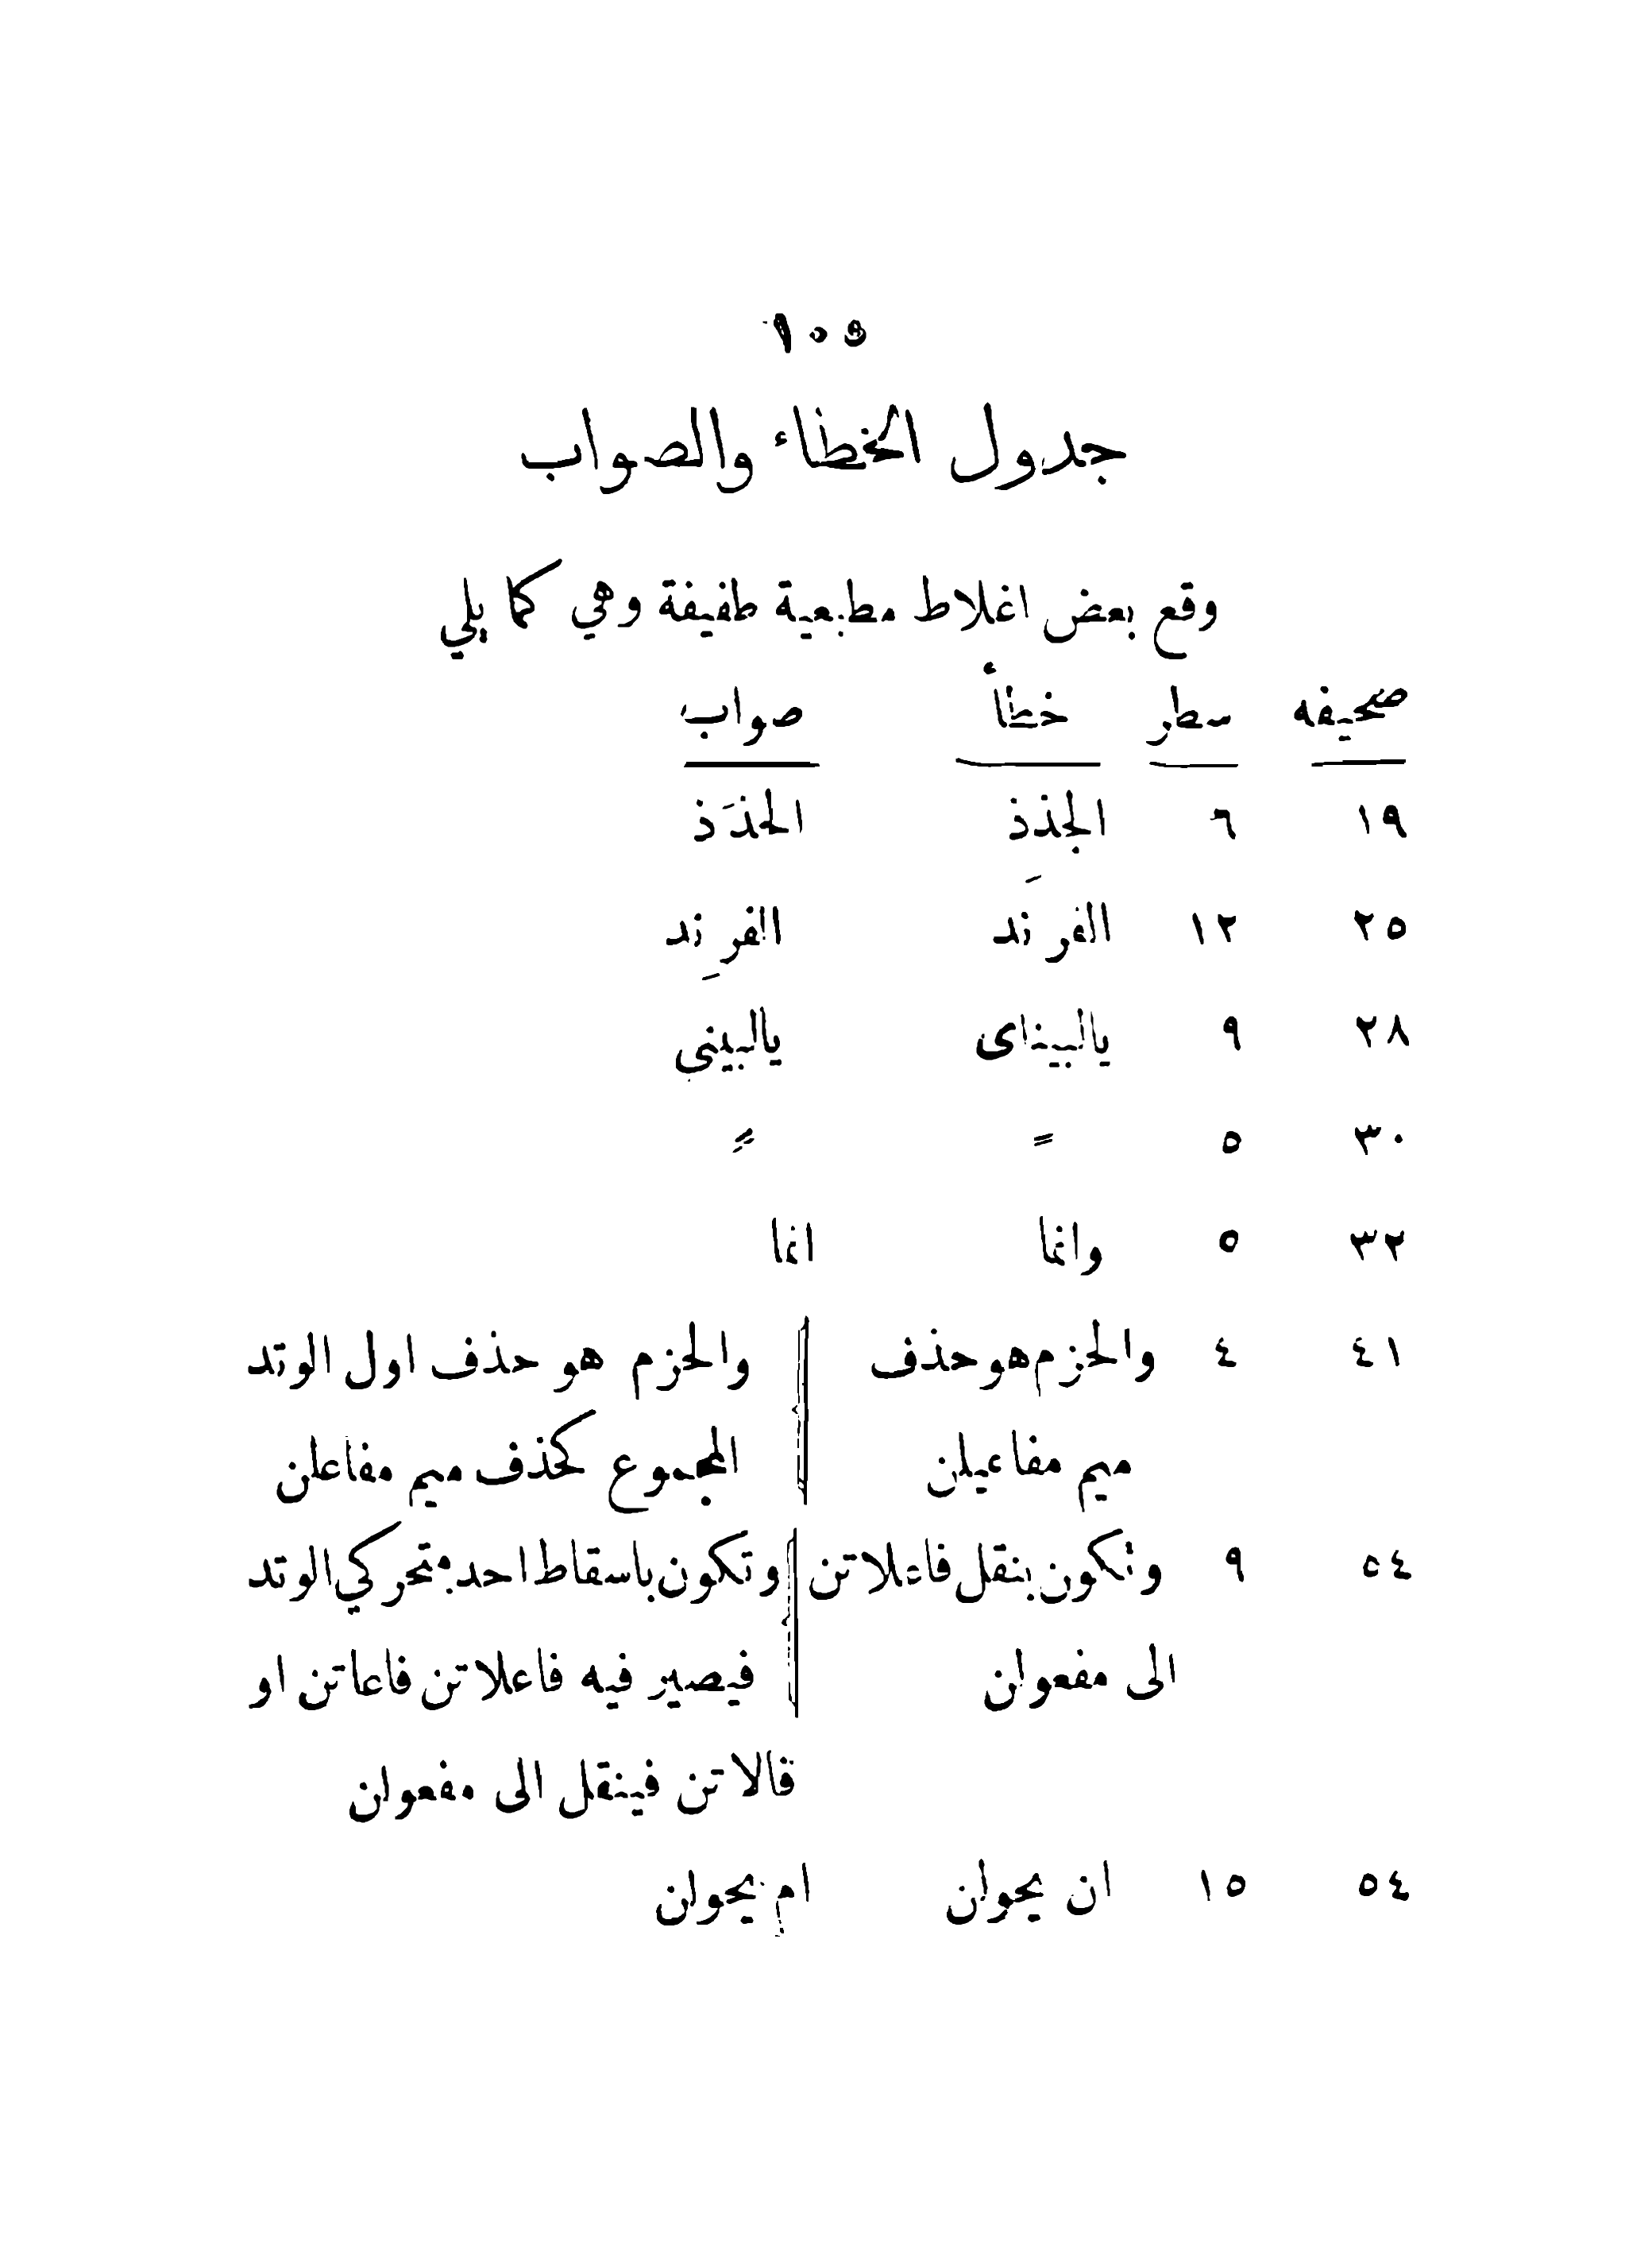 ١٠٥
جدول الخطاء والصواب
وقع بعض اغلاط مطبعية طفيفة وهي كما يلي
صحيفه سطر خطأ صواب
١٩ ٦ الجذذ الحذَذ
٢٥ ١٢ الفرَند الفرِند
٢٨ ٩ يالبيناى يالبيني
٣٠ ٥ = =
٣٢ ٥ وانما انما
٤١ ٤ والخزم هو حذف والخزم هو حذف اول الوتد
ميم مفاعيلن المجموع كحذف ميم مفاعلن
٥٤ ٩ وتكون بنقل فاعلاتن وتكون باسقاط احد متحركي الوتد
الى مفعولن فيصير فيه فاعلاتن فاعاتن او
فالاتن فينقل الى مفعولن
٥٤ ١٥ ان يحولن ام يحولن